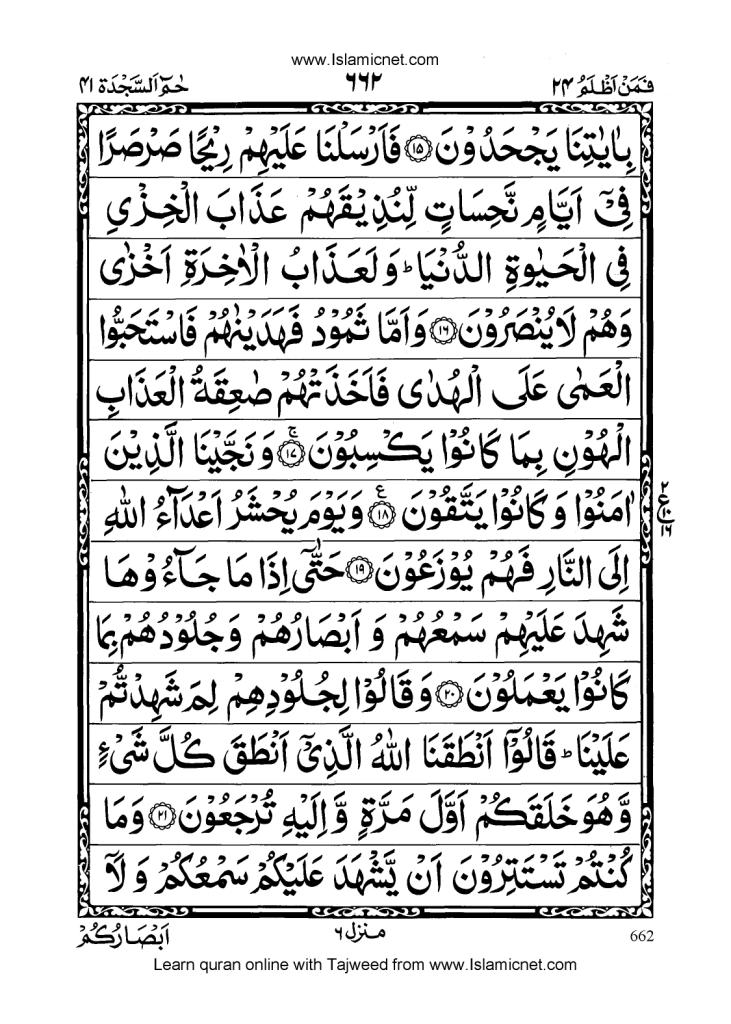 www.Islamicnet.com
فَمَنْ اَظْلَمُ ۲۴ ۶۶۲ حٰمٓ السَّجْدَة ۴۱
بِاٰيٰتِنَا يَجْحَدُوْنَ ۝۱۵ فَاَرْسَلْنَا عَلَيْهِمْ رِيْحًا صَرْصَرًا
فِيْٓ اَيَّامٍ نَّحِسَاتٍ لِّنُذِيْقَهُمْ عَذَابَ الْخِزْيِ
فِي الْحَيٰوةِ الدُّنْيَا ؕ وَلَعَذَابُ الْاٰخِرَةِ اَخْزٰى
وَهُمْ لَا يُنْصَرُوْنَ ۝۱۶ وَاَمَّا ثَمُوْدُ فَهَدَيْنٰهُمْ فَاسْتَحَبُّوا
الْعَمٰى عَلَى الْهُدٰى فَاَخَذَتْهُمْ صٰعِقَةُ الْعَذَابِ
الْهُوْنِ بِمَا كَانُوْا يَكْسِبُوْنَ ۝۱۷ۚ وَنَجَّيْنَا الَّذِيْنَ
اٰمَنُوْا وَكَانُوْا يَتَّقُوْنَ ۝۱۸ ع وَيَوْمَ يُحْشَرُ اَعْدَآءُ اللّٰهِ
۲ ع ۱۰ ۱۶
اِلَى النَّارِ فَهُمْ يُوْزَعُوْنَ ۝۱۹ حَتّٰٓى اِذَا مَا جَآءُوْهَا
شَهِدَ عَلَيْهِمْ سَمْعُهُمْ وَ اَبْصَارُهُمْ وَجُلُوْدُهُمْ بِمَا
كَانُوْا يَعْمَلُوْنَ ۝۲۰ وَقَالُوْا لِجُلُوْدِهِمْ لِمَ شَهِدْتُّمْ
عَلَيْنَا ؕ قَالُوْٓا اَنْطَقَنَا اللّٰهُ الَّذِيْٓ اَنْطَقَ كُلَّ شَيْءٍ
وَّهُوَ خَلَقَكُمْ اَوَّلَ مَرَّةٍ وَّاِلَيْهِ تُرْجَعُوْنَ ۝۲۱ وَمَا
كُنْتُمْ تَسْتَتِرُوْنَ اَنْ يَّشْهَدَ عَلَيْكُمْ سَمْعُكُمْ وَ لَآ
662 منزل ۶ اَبْصَارُكُمْ
Learn quran online with Tajweed from www.Islamicnet.com